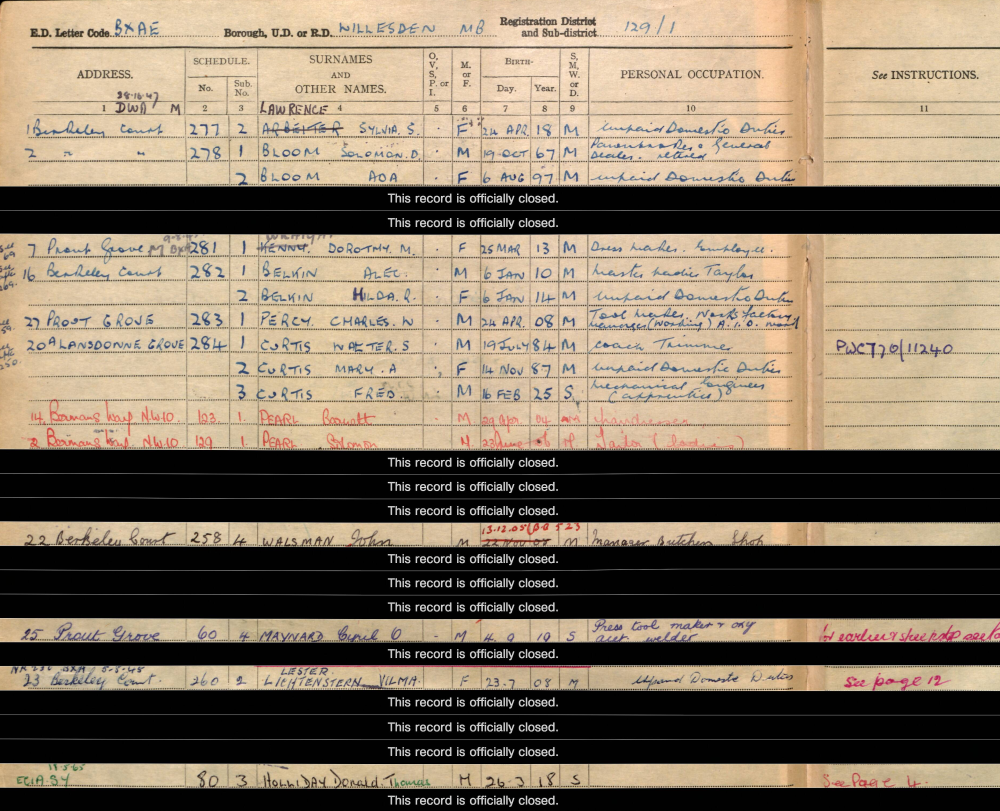 E.D. Letter Code BXAE Borough, U.D. or R.D. WILLESDEN MB Registration District and Sub-district 129/1
ADDRESS. SCHEDULE. No. Sub. No. SURNAMES AND OTHER NAMES. O, V, S, P, or I. M. or F. BIRTH- Day. Year. S, M, W, or D. PERSONAL OCCUPATION. See INSTRUCTIONS.
1 2 3 4 5 6 7 8 9 10 11
DWA M LAWRENCE
1 Berkeley Court 277 2 ARBEITER SYLVIA. S. F 24 APR 18 M Unpaid Domestic Duties
2 " " 278 1 BLOOM SOLOMON. D. M 19 OCT 67 M Pawnbroker & General Dealer. retired
2 BLOOM ADA F 6 AUG 97 M Unpaid Domestic Duties
This record is officially closed.
This record is officially closed.
7 Prout Grove 281 1 KENNY. DOROTHY. M. F 25 MAR 13 M Dress maker. Employee.
16 Berkeley Court 282 1 BELKIN ALEC. M 6 JAN 10 M Master Ladies Taylor
2 BELKIN HILDA. R. F 6 JAN 14 M Unpaid Domestic Duties
27 PROUT GROVE 283 1 PERCY. CHARLES. W M 24 APR. 08 M Tool maker. Works factory manager (Working) A.I.D.
20A LANSDOWNE GROVE 284 1 CURTIS WALTER. S M 19 JULY 84 M Coach Trimmer PWC770/11240
2 CURTIS MARY. A F 14 NOV 87 M Unpaid Domestic Duties
3 CURTIS FRED. M 16 FEB 25 S. Mechanical Engineer (apprentice)
14. Bermans Way NW10 123 1. PEARL Barnett M 29 Apr. 04
2 Bermans Way NW10 129 1. PEARL Solomon M 23 June M Tailor (Ladies)
This record is officially closed.
This record is officially closed.
This record is officially closed.
13.12.05
22 Berkeley Court 258 4 WALSMAN John M 22 NOV 08 M Manager Butchers Shop
This record is officially closed.
This record is officially closed.
This record is officially closed.
25 Prout Grove 60 4 MAYNARD Cyril O - M 4. 9 19 S Press tool maker & oxy acet welder
This record is officially closed.
LESTER
23 Berkeley Court. 260 2 LICHTENSTERN VILMA. F 23-7 03 M Unpaid Domestic Duties See page 12
This record is officially closed.
This record is officially closed.
This record is officially closed.
18-5-65
ECIA.SY 80 3 HOLLIDAY Donald Thomas M 26-3 18 S See Page 4.
This record is officially closed.